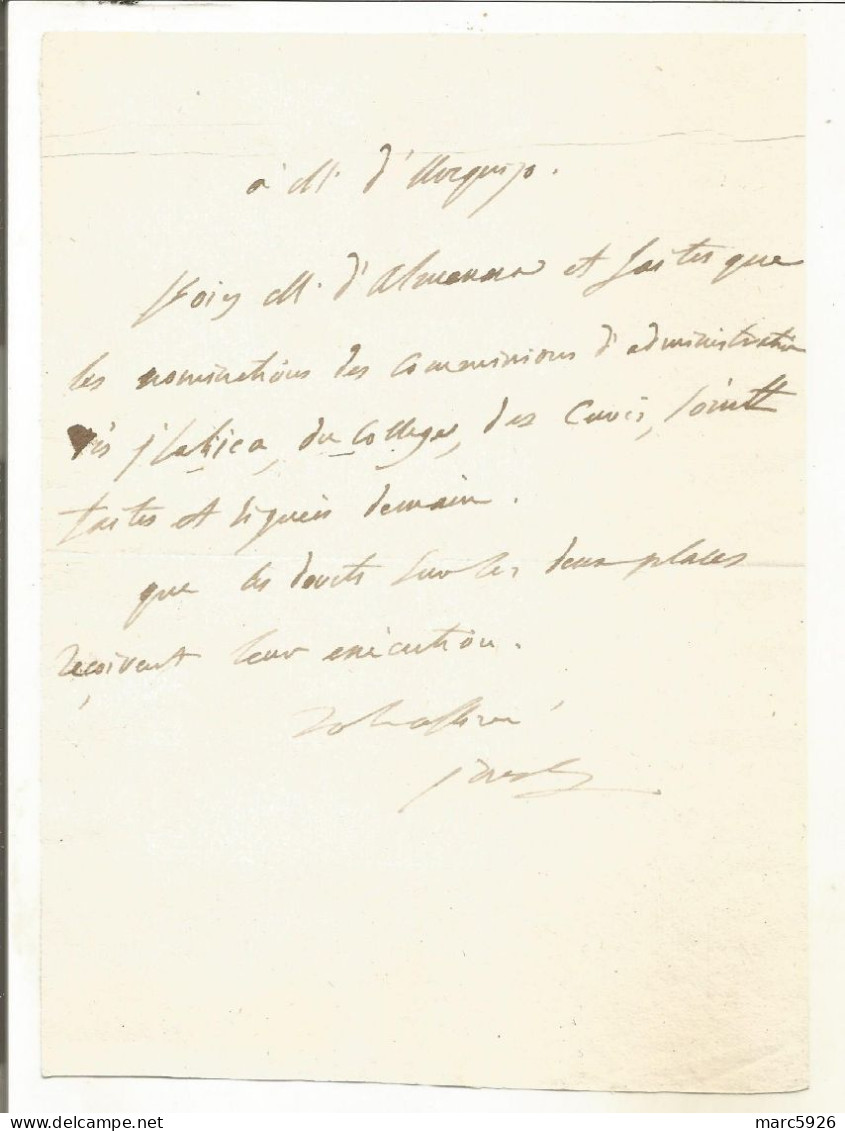 à M. d'Urquijo.
Voiez M. d'Almenara et faites que
les nominations des commissions d'administration
des du College, des Cures, soient
faites et signées demain.
que les decrets sur les deux places
reçoivent leur exécution.
votre affné
marc5926